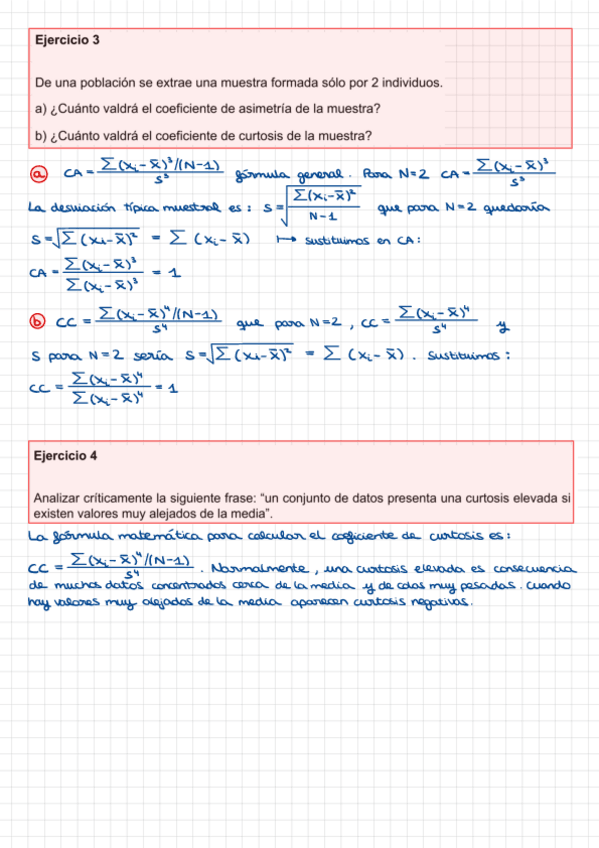 Ejercicio 3
De una población se extrae una muestra formada sólo por 2 individuos.
a) ¿Cuánto valdrá el coeficiente de asimetría de la muestra?
b) ¿Cuánto valdrá el coeficiente de curtosis de la muestra?
a CA = Σ(xᵢ - x̄)³/(N-1) / s³ fórmula general. Para N=2 CA = Σ(xᵢ - x̄)³ / s³
La desviación típica muestral es: s = √(Σ(xᵢ - x̄)² / N-1) que para N=2 quedaría
s = √Σ(xᵢ - x̄)² = Σ (xᵢ - x̄) ↦ sustituimos en CA:
CA = Σ(xᵢ - x̄)³ / Σ(xᵢ - x̄)³ = 1
b CC = Σ(xᵢ - x̄)⁴/(N-1) / s⁴ que para N=2, CC = Σ(xᵢ - x̄)⁴ / s⁴ y
s para N=2 sería s = √Σ(xᵢ - x̄)² = Σ (xᵢ - x̄). Sustituimos:
CC = Σ(xᵢ - x̄)⁴ / Σ(xᵢ - x̄)⁴ = 1
Ejercicio 4
Analizar críticamente la siguiente frase: “un conjunto de datos presenta una curtosis elevada si
existen valores muy alejados de la media”.
La fórmula matemática para calcular el coeficiente de curtosis es:
CC = Σ(xᵢ - x̄)⁴/(N-1) / s⁴. Normalmente, una curtosis elevada es consecuencia
de muchos datos concentrados cerca de la media y de colas muy pesadas. Cuando
hay valores muy alejados de la media aparecen curtosis negativas.